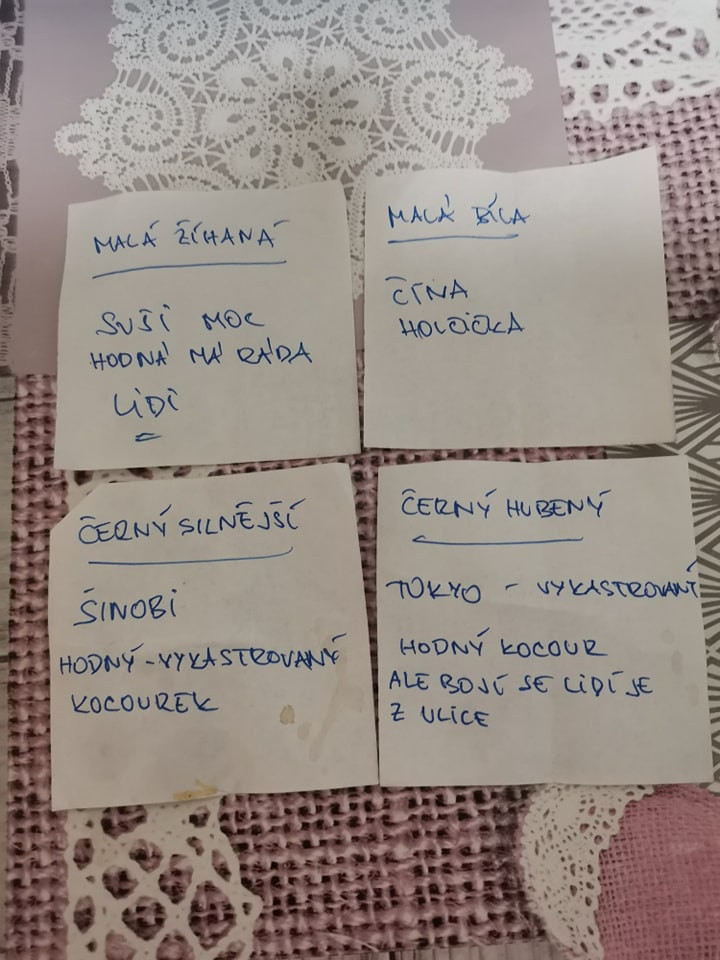 MALÁ ŽÍHANÁ
SUŠI MOC
HODNÁ MÁ RÁDA
LIDI
MALÁ BÍLA
ČÍNA
HOLČIČKA
ČERNÝ SILNĚJŠÍ
ŠINOBI
HODNÝ - VYKASTROVANÝ
KOCOUREK
ČERNÝ HUBENÝ
TOKYO - VYKASTROVANÝ
HODNÝ KOCOUR
ALE BOJÍ SE LIDÍ JE
Z ULICE